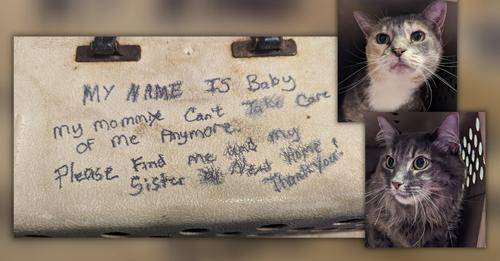 MY NAME IS Baby
my mommye Can't Take Care
of me Anymore.
Please Find me and my
Sister A New Home
Thank You!